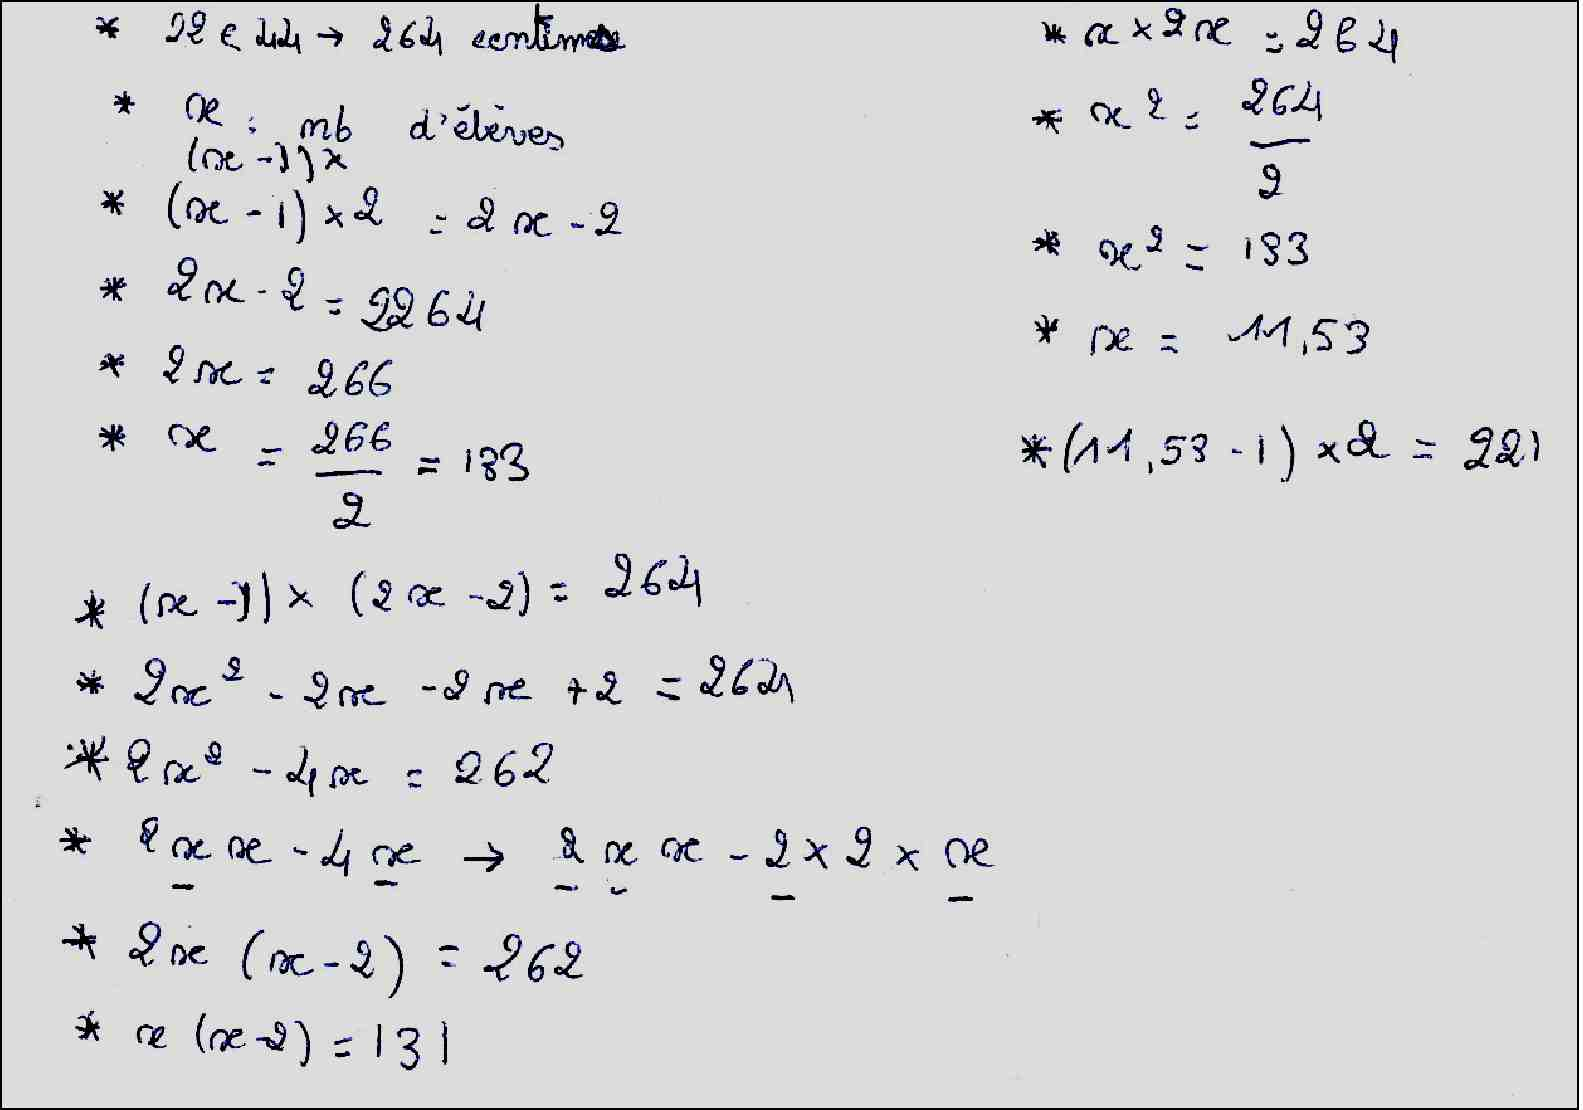 * 22 € 44 → 264 centimes
* x : nb d'élèves
(x - 1) x
* (x - 1) × 2 = 2x - 2
* 2x - 2 = 2264
* 2x = 266
* x = 266/2 = 133
* (x - 1) × (2x - 2) = 264
* 2x² - 2x - 2x + 2 = 264
* 2x² - 4x = 262
* 2xx - 4x → 2xx - 2 × 2 × x
* 2x (x - 2) = 262
* x (x - 2) = 131
* x × 2x = 264
* x² = 264/2
* x² = 133
* x = 11,53
* (11,53 - 1) × 2 = 221